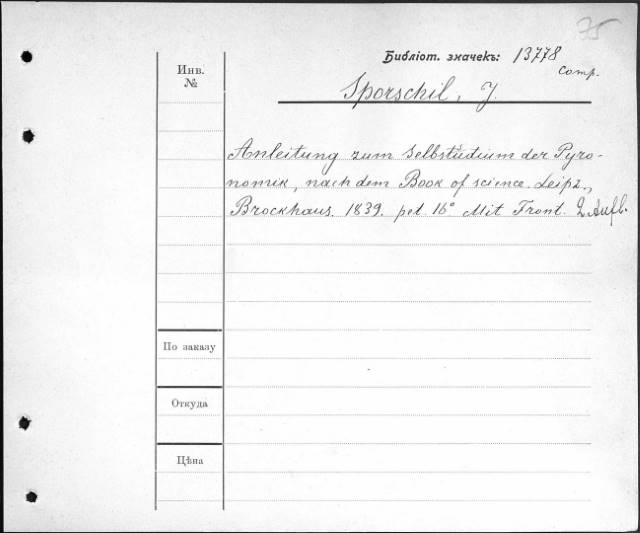 75
Библіот. значекъ: 13778
Comp.
Инв.
№
Sporschil, J.
Anleitung zum Selbstŭdium der Pyro-
nomik, nach dem Book of science. Leipz.,
Brockhaus. 1839. pet. 16° Mit Front. 2 Aufl.
По заказу
Откуда
Цѣна